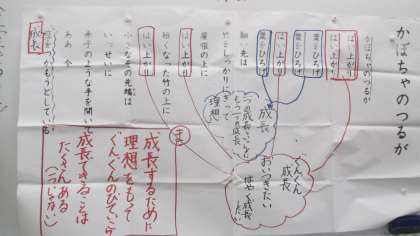 かぼちゃのつるが
かぼちゃのつるが
はい上がり
はい上がり
葉をひろげ
葉をひろげ
はい上がり
葉をひろげ
細い先は
竹をしっかりにぎって
屋根の上に
はい上がり
短くなった竹の上に
はい上がり
小さなその先端は
いっせいに
赤子のような手を開いて
ああ 今
空をつかもうとしている
成長
理想
成長
おいつきたい
ぐんぐん
成長
はやく成長
したい
ま
成長するために
理想をもって
ぐんぐんのびていく
成長できることは
たくさんある